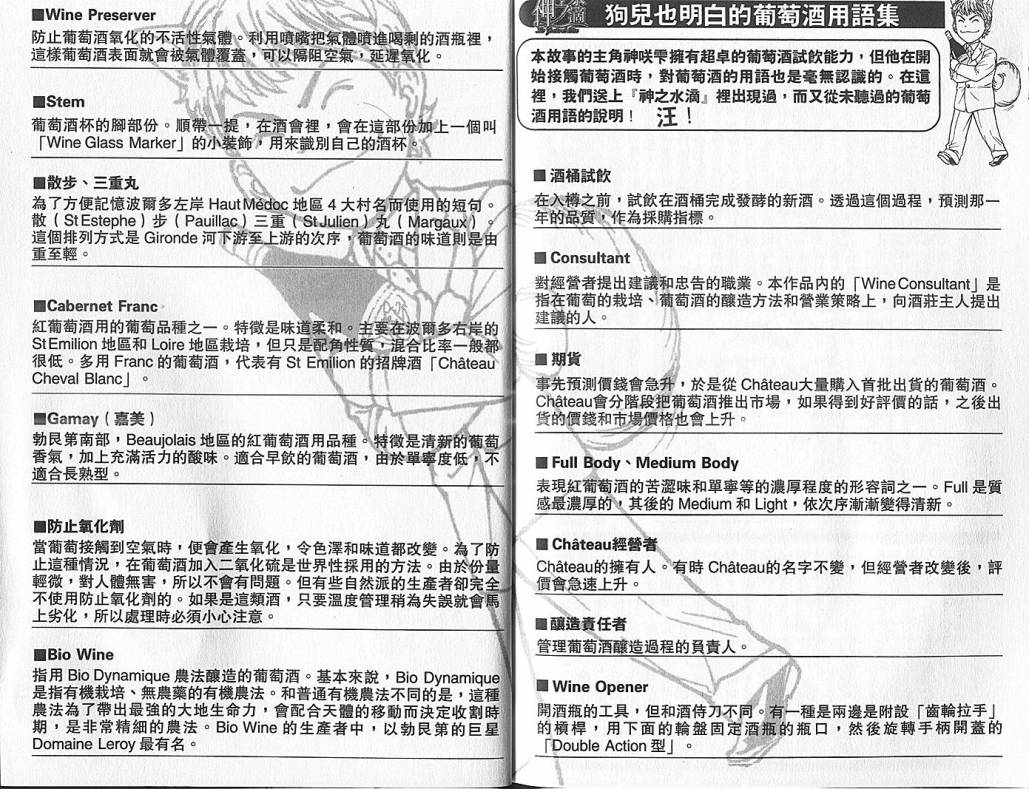 神之水滴 狗兒也明白的葡萄酒用語集
本故事的主角神咲雫擁有超卓的葡萄酒試飲能力，但他在開
始接觸葡萄酒時，對葡萄酒的用語也是毫無認識的。在這
裡，我們送上『神之水滴』裡出現過，而又從未聽過的葡萄
酒用語的說明！ 汪！
■酒桶試飲
在入樽之前，試飲在酒桶完成發酵的新酒。透過這個過程，預測那一
年的品質，作為採購指標。
■Consultant
對經營者提出建議和忠告的職業。本作品內的「Wine Consultant」是
指在葡萄的栽培、葡萄酒的釀造方法和營業策略上，向酒莊主人提出
建議的人。
■期貨
事先預測價錢會急升，於是從 Château大量購入首批出貨的葡萄酒。
Château會分階段把葡萄酒推出市場，如果得到好評價的話，之後出
貨的價錢和市場價格也會上升。
■Full Body、Medium Body
表現紅葡萄酒的苦澀味和單寧等的濃厚程度的形容詞之一。Full 是質
感最濃厚的，其後的 Medium 和 Light，依次序漸漸變得清新。
■Château經營者
Château的擁有人。有時 Château的名字不變，但經營者改變後，評
價會急速上升。
■釀造責任者
管理葡萄酒釀造過程的負責人。
■Wine Opener
開酒瓶的工具，但和酒侍刀不同。有一種是兩邊是附設「齒輪拉手」
的槓桿，用下面的輪盤固定酒瓶的瓶口，然後旋轉手柄開蓋的
「Double Action 型」。
■Wine Preserver
防止葡萄酒氧化的不活性氣體。利用噴嘴把氣體噴進喝剩的酒瓶裡，
這樣葡萄酒表面就會被氣體覆蓋，可以隔阻空氣，延遲氧化。
■Stem
葡萄酒杯的腳部份。順帶一提，在酒會裡，會在這部份加上一個叫
「Wine Glass Marker」的小裝飾，用來識別自己的酒杯。
■散步、三重丸
為了方便記憶波爾多左岸 Haut Médoc 地區 4 大村名而使用的短句。
散（St Estephe）步（Pauillac）三重（St Julien）丸（Margaux）。
這個排列方式是 Gironde 河下游至上游的次序，葡萄酒的味道則是由
重至輕。
■Cabernet Franc
紅葡萄酒用的葡萄品種之一。特徵是味道柔和。主要在波爾多右岸的
St Emilion 地區和 Loire 地區栽培，但只是配角性質，混合比率一般都
很低。多用 Franc 的葡萄酒，代表有 St Emilion 的招牌酒「Château
Cheval Blanc」。
■Gamay（嘉美）
勃艮第南部，Beaujolais 地區的紅葡萄酒用品種。特徵是清新的葡萄
香氣，加上充滿活力的酸味。適合早飲的葡萄酒，由於單寧度低，不
適合長熟型。
■防止氧化劑
當葡萄接觸到空氣時，便會產生氧化，令色澤和味道都改變。為了防
止這種情況，在葡萄酒加入二氧化硫是世界性採用的方法。由於份量
輕微，對人體無害，所以不會有問題。但有些自然派的生產者卻完全
不使用防止氧化劑的。如果是這類酒，只要溫度管理稍為失誤就會馬
上劣化，所以處理時必須小心注意。
■Bio Wine
指用 Bio Dynamique 農法釀造的葡萄酒。基本來說，Bio Dynamique
是指有機栽培、無農藥的有機農法。和普通有機農法不同的是，這種
農法為了帶出最強的大地生命力，會配合天體的移動而決定收割時
期，是非常精細的農法。Bio Wine 的生產者中，以勃艮第的巨星
Domaine Leroy 最有名。